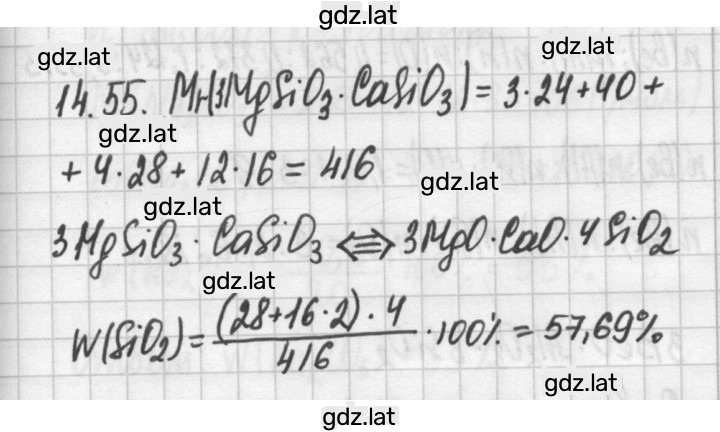 gdz.lat
gdz.lat
gdz.lat
14.55. Mr(3MgSiO₃·CaSiO₃)= 3·24+40+
gdz.lat
+ 4·28+12·16= 416
gdz.lat
gdz.lat
3MgSiO₃·CaSiO₃ ⇔ 3MgO·CaO·4SiO₂
gdz.lat
W(SiO₂)= (28+16·2)·4 / 416 ·100% = 57,69%
gdz.lat
gdz.lat